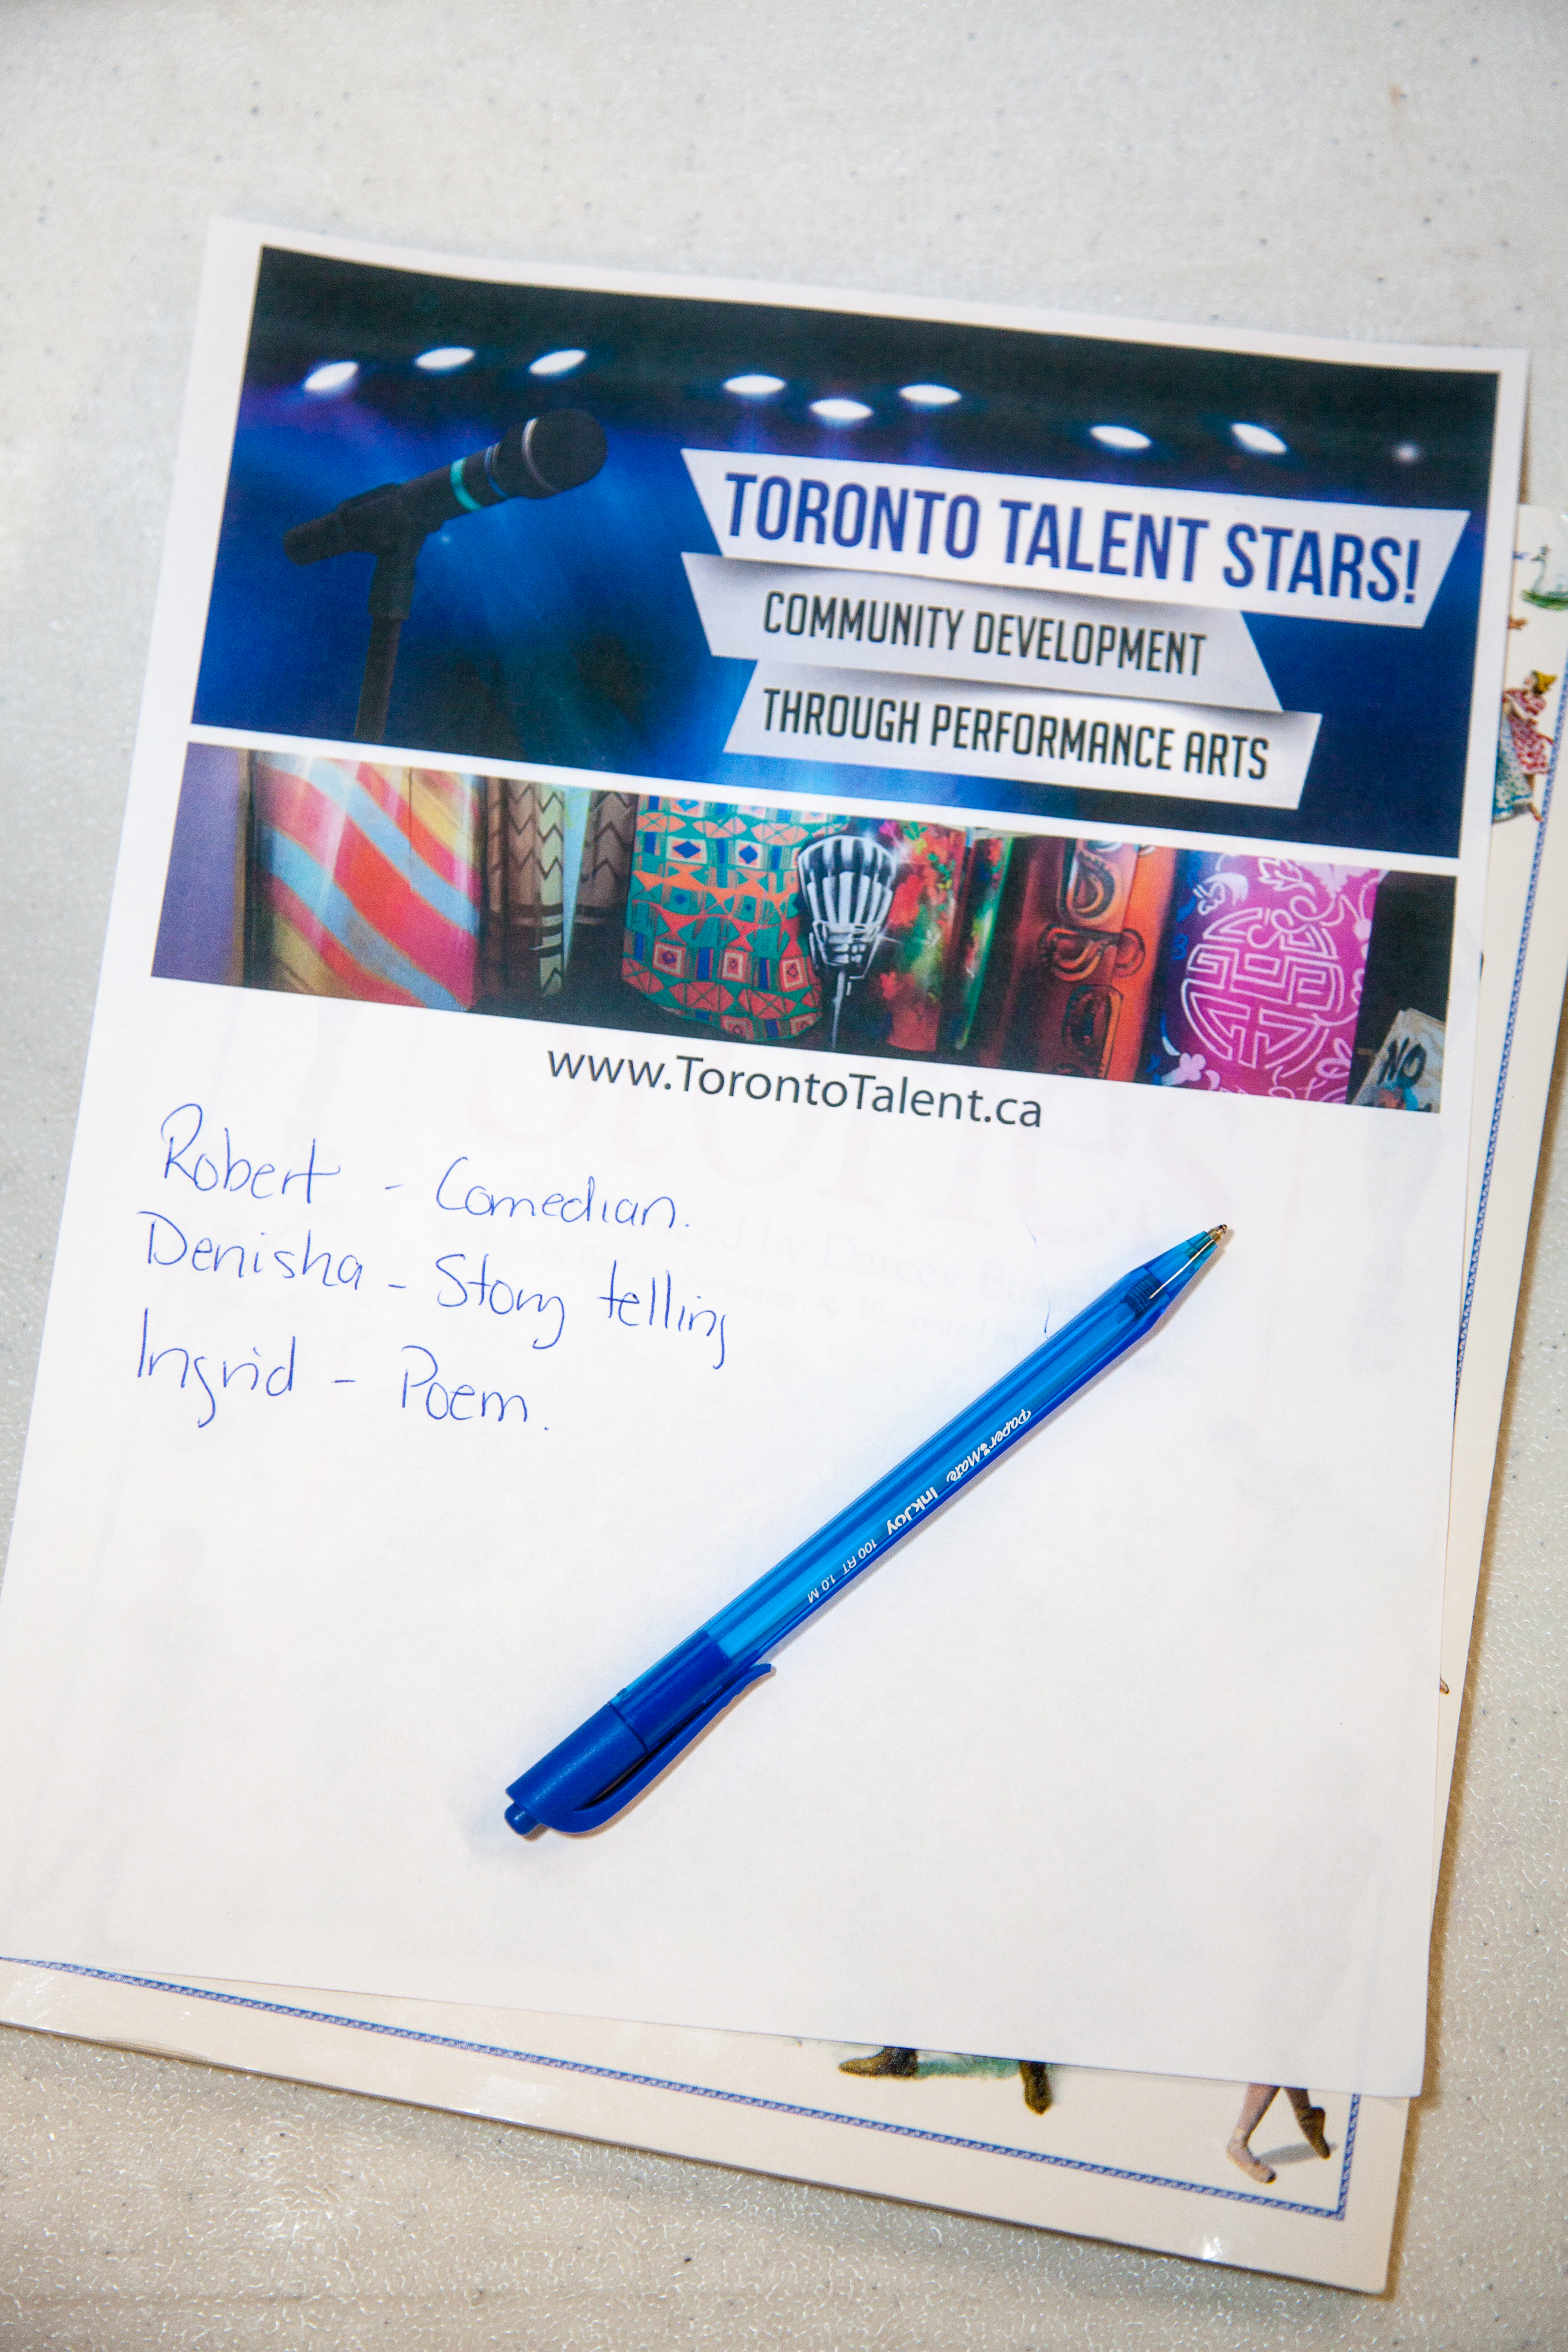 TORONTO TALENT STARS!
COMMUNITY DEVELOPMENT
THROUGH PERFORMANCE ARTS
NO
www.TorontoTalent.ca
Robert - Comedian.
Denisha - Story telling
Ingrid - Poem.
Paper Mate InkJoy 100 RT 1.0 M